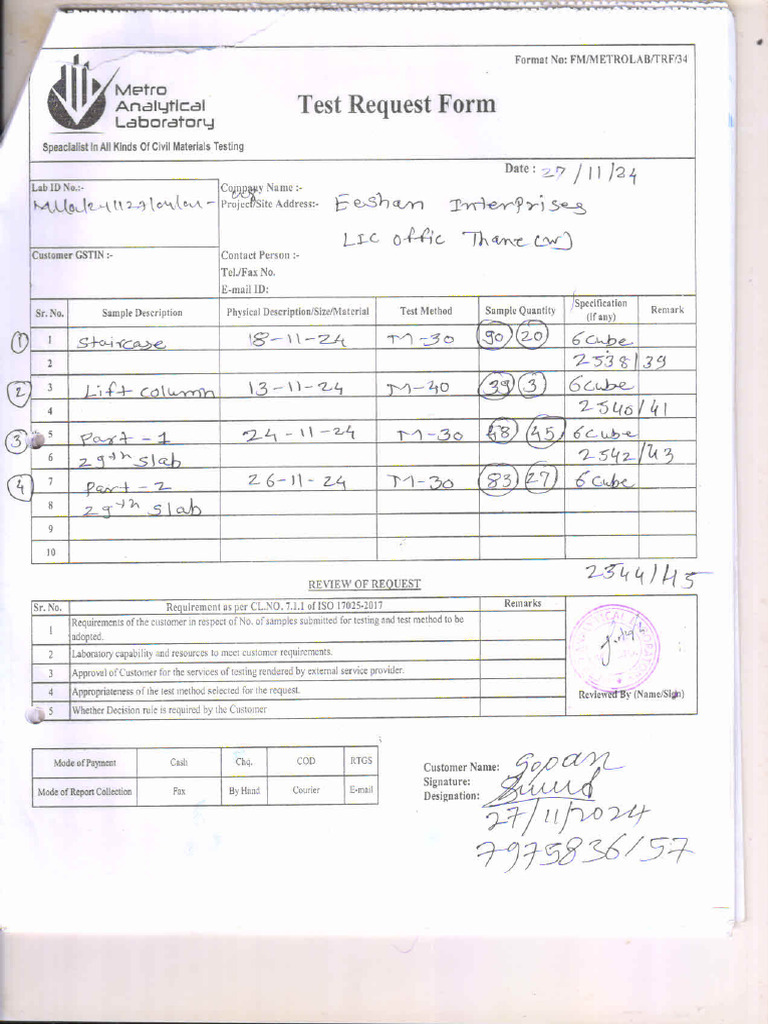 Format No: FM/METROLAB/TRF/34
Metro
Analytical
Laboratory
Test Request Form
Speacialist In All Kinds Of Civil Materials Testing
Date : 27/11/24
Lab ID No.:-
Company Name :-
Project/Site Address:- Eeshan Interprises
LIC offic Thane (w)
Customer GSTIN :-
Contact Person :-
Tel./Fax No.
E-mail ID:
Sr. No. Sample Description Physical Description/Size/Material Test Method Sample Quantity Specification (if any) Remark
① 1 Staircase 18-11-24 M-30 90 20 6 Cube
2 2538/39
② 3 Lift column 13-11-24 M-40 39 3 6 Cube
4 2540/41
③ 5 Part-1 24-11-24 M-30 68 45 6 Cube
6 29th Slab 2542/43
④ 7 Part-2 26-11-24 M-30 83 27 6 Cube
8 29th Slab
9
10
2544/45
REVIEW OF REQUEST
Sr. No. Requirement as per CL.NO. 7.1.1 of ISO 17025-2017 Remarks
1 Requirements of the customer in respect of No. of samples submitted for testing and test method to be
adopted.
2 Laboratory capability and resources to meet customer requirements.
3 Approval of Customer for the services of testing rendered by external service provider.
4 Appropriateness of the test method selected for the request.
5 Whether Decision rule is required by the Customer
Reviewed By (Name/Sign)
Mode of Payment Cash Chq. COD RTGS
Mode of Report Collection Fax By Hand Courier E-mail
Customer Name: Gopan
Signature:
Designation:
27/11/2024
7975836157